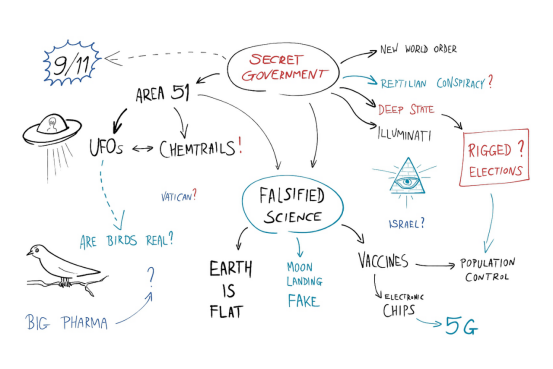 9/11
SECRET
GOVERNMENT
NEW WORLD ORDER
REPTILIAN CONSPIRACY?
DEEP STATE
ILLUMINATI
AREA 51
UFOs
CHEMTRAILS!
RIGGED ?
ELECTIONS
VATICAN?
FALSIFIED
SCIENCE
ISRAEL?
ARE BIRDS REAL?
?
BIG PHARMA
EARTH
IS
FLAT
MOON
LANDING
FAKE
VACCINES
POPULATION
CONTROL
ELECTRONIC
CHIPS
5G